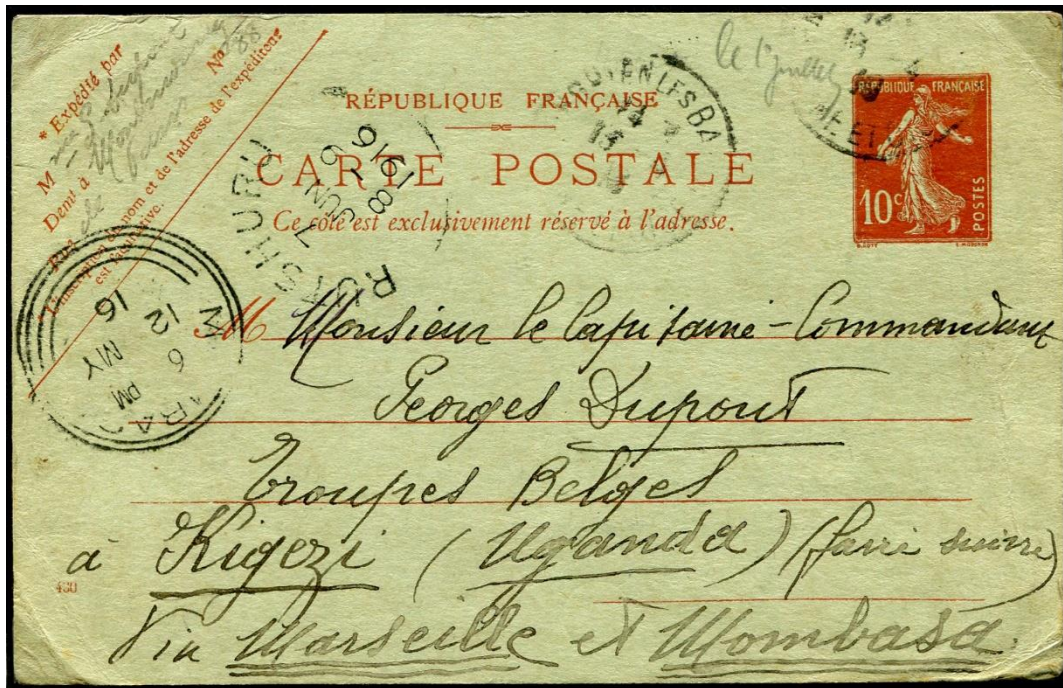 * Expédié par
M me G. Dupont
Demt à Montmorency
Rue de
No 88
L'inscription du nom et de l'adresse de l'expéditeur
est facultative.
le 1 juillet
RÉPUBLIQUE FRANÇAISE
CARTE POSTALE
Ce côté est exclusivement réservé à l'adresse.
RÉPUBLIQUE FRANÇAISE
10c
POSTES
RUTSHURU
7 JUIN
1916
12
6 PM
MY
16
M Monsieur le Capitaine-Commandant
Georges Dupont
Troupes Belges
à Kigezi (Uganda) (faire suivre)
Via Marseille et Mombasa.